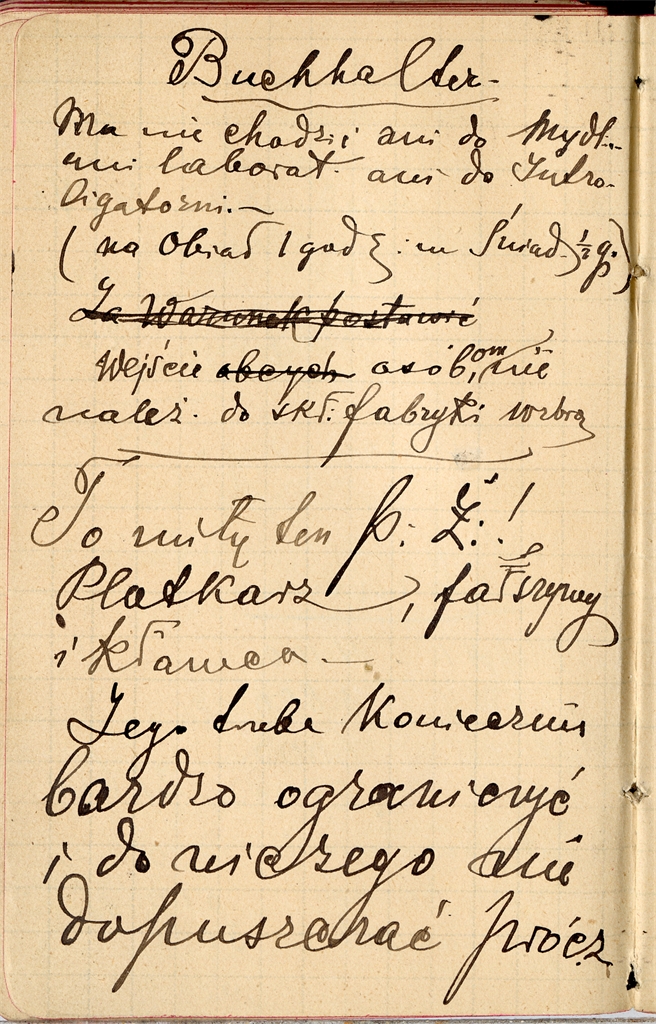 Buchhalter -
Ma nie chodzić ani do Mydł.
ani laborat. ani do Intro-
ligatorni. -
(na Obiad 1 godz: na Śniad. ½ g.)
Za Warunek postawić
Wejście obcych osób, om nie
należ. do skł. fabryki wzbro
To miły ten p. Ż.!
Plotkarz, fałszywy
i kłamca -
Jego trzeba Koniecznie
bardzo ograniczyć
i do niczego nie
dopuszczać prócz